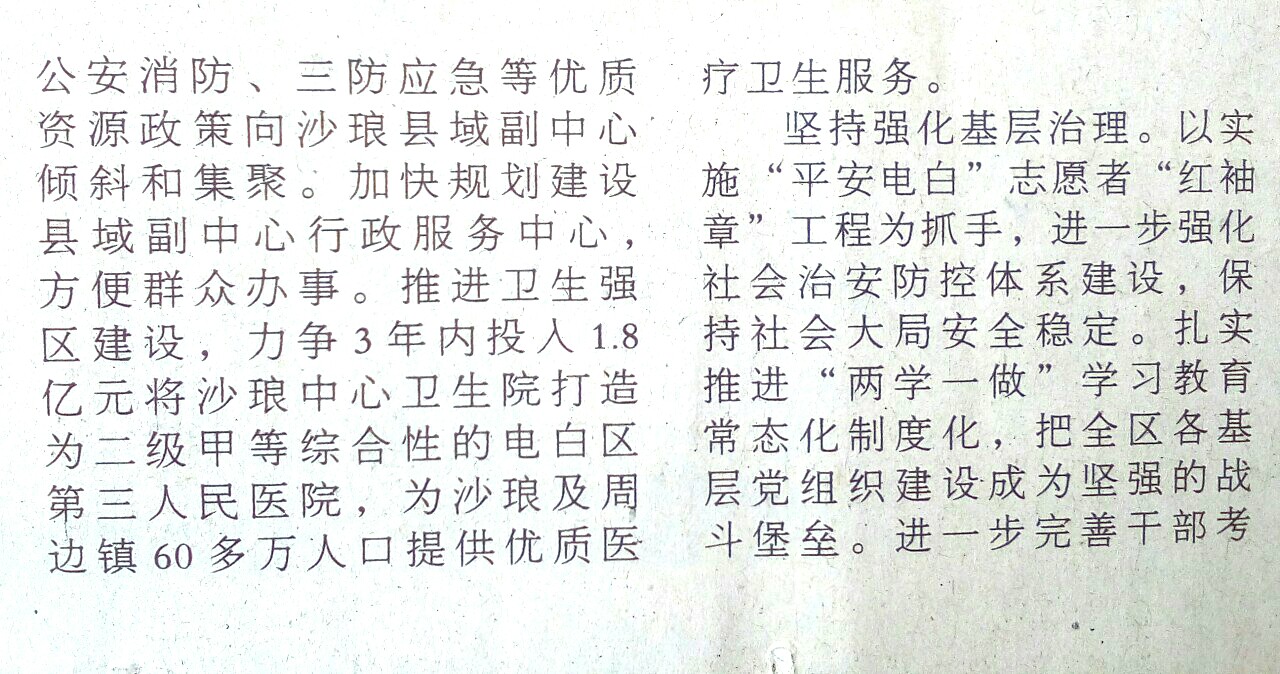 公安消防、三防应急等优质
资源政策向沙琅县域副中心
倾斜和集聚。加快规划建设
县域副中心行政服务中心，
方便群众办事。推进卫生强
区建设，力争3年内投入1.8
亿元将沙琅中心卫生院打造
为二级甲等综合性的电白区
第三人民医院，为沙琅及周
边镇60多万人口提供优质医
疗卫生服务。
坚持强化基层治理。以实
施“平安电白”志愿者“红袖
章”工程为抓手，进一步强化
社会治安防控体系建设，保
持社会大局安全稳定。扎实
推进“两学一做”学习教育
常态化制度化，把全区各基
层党组织建设成为坚强的战
斗堡垒。进一步完善干部考